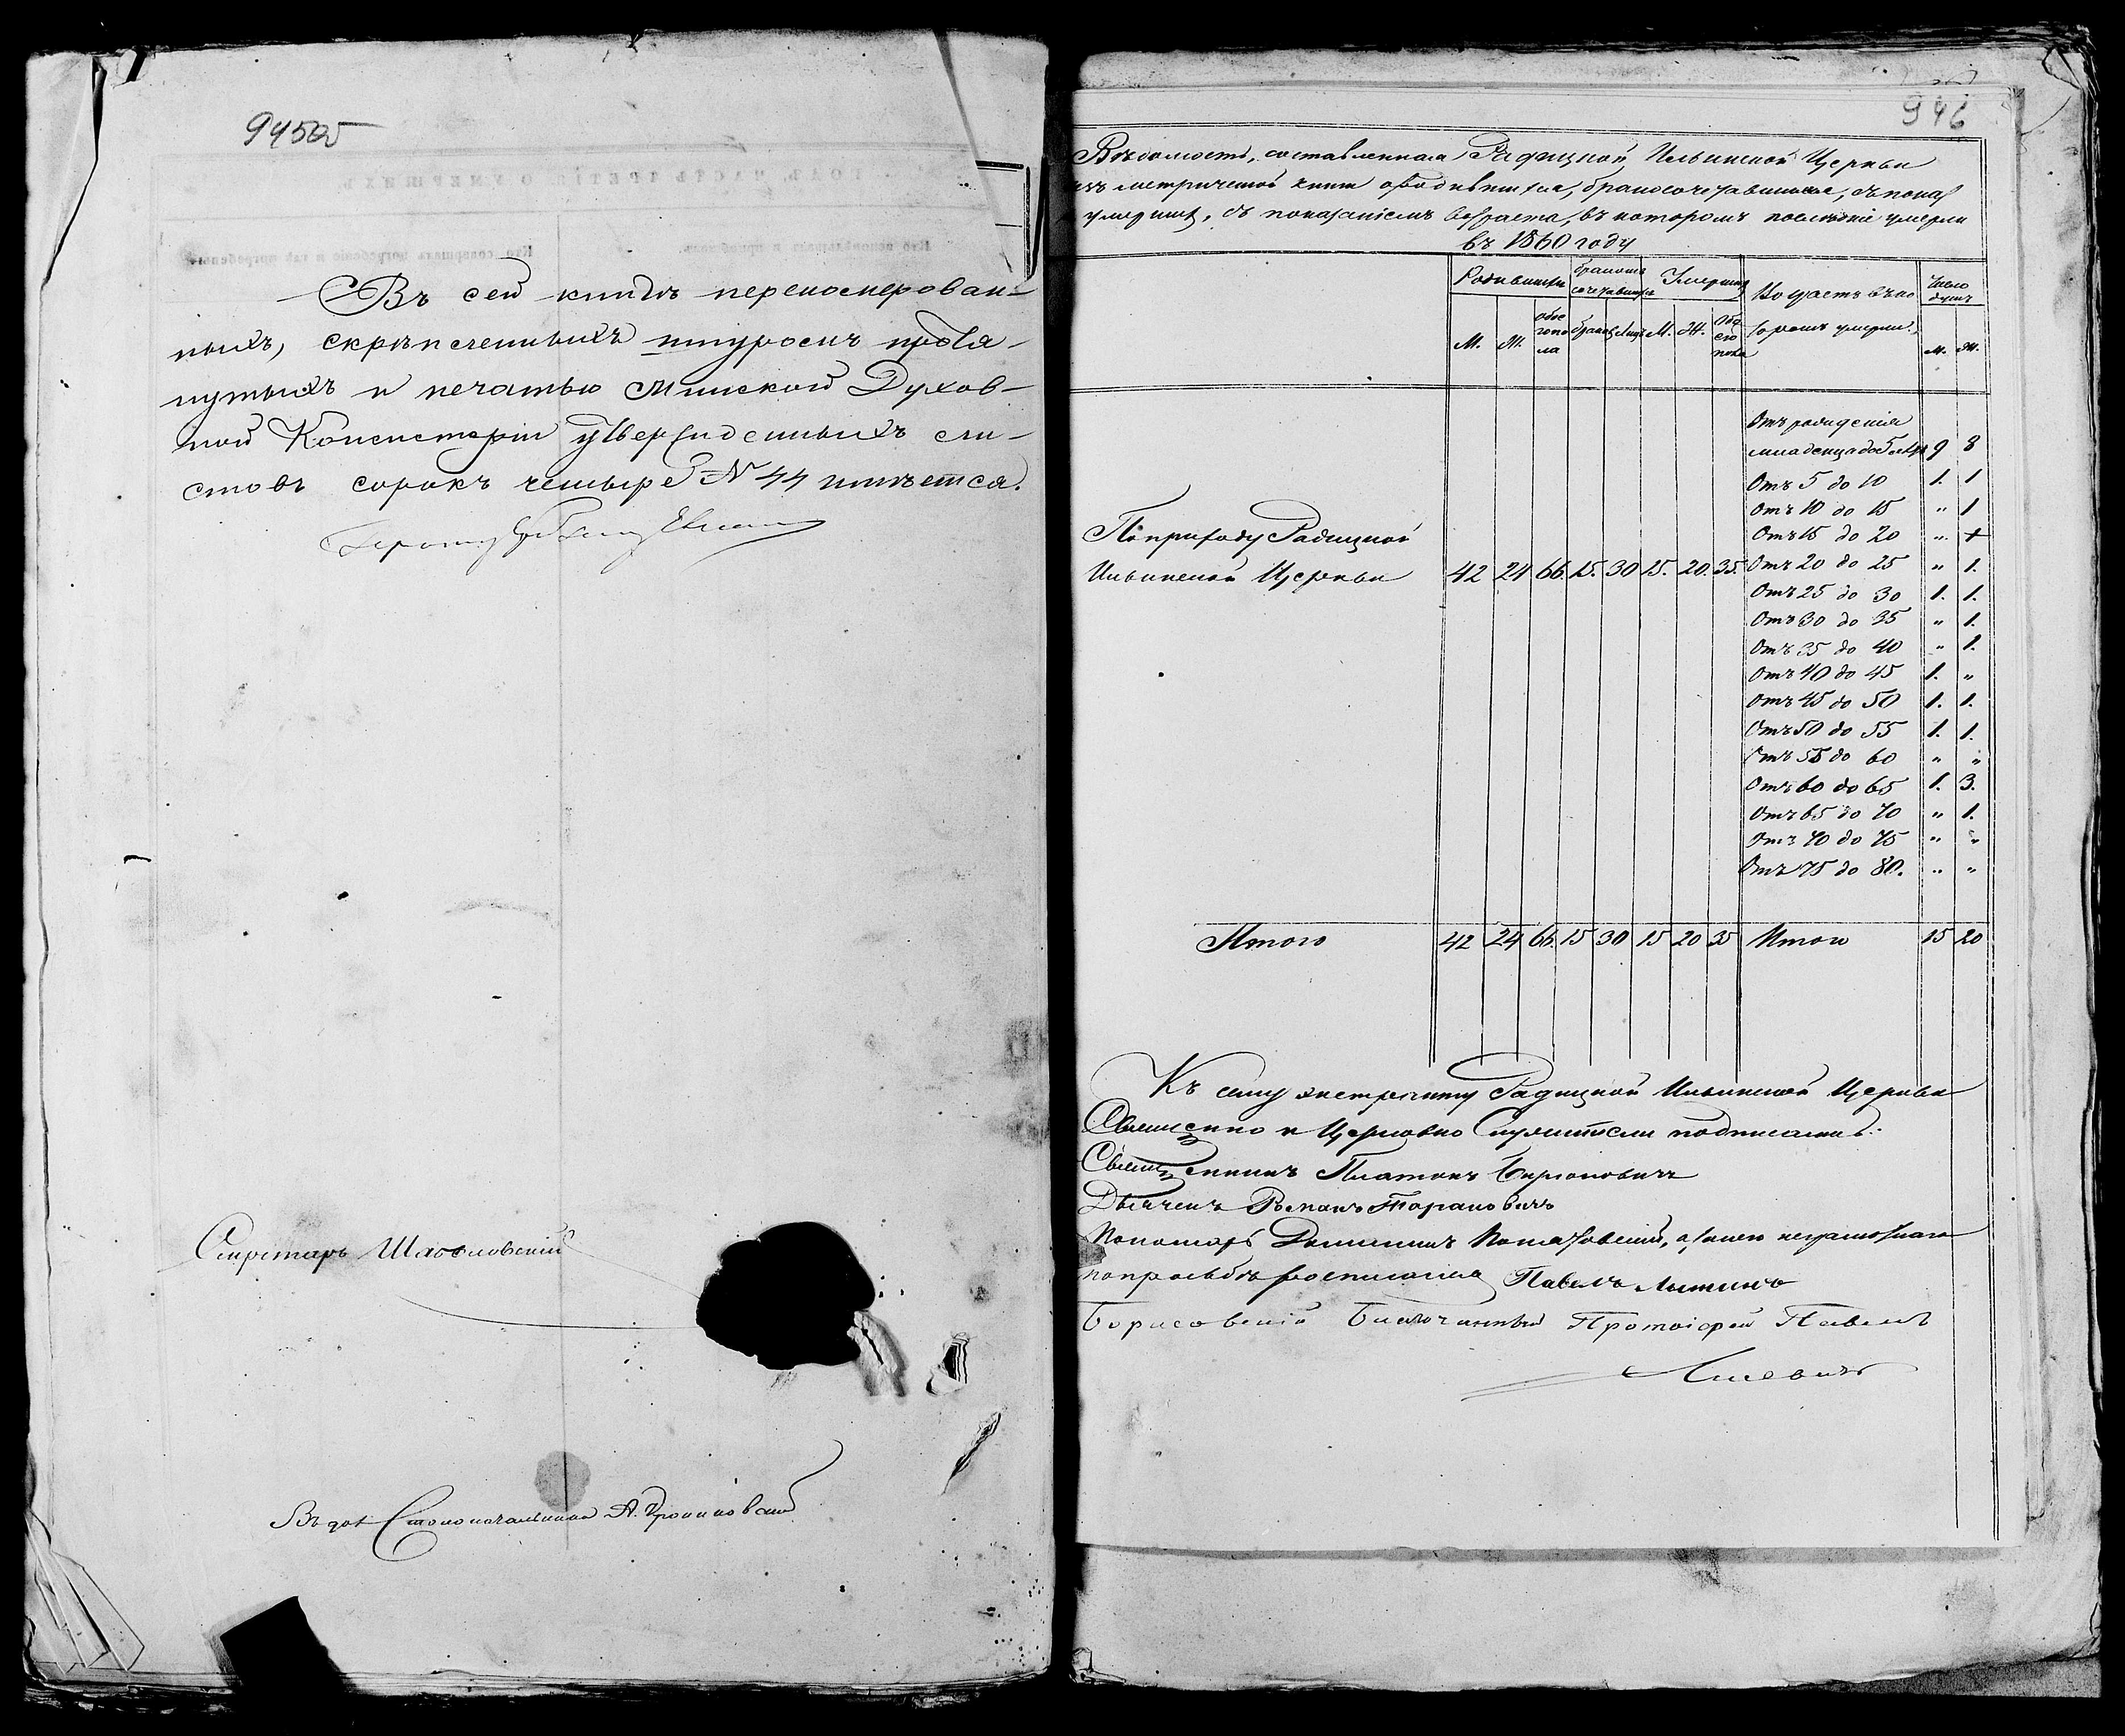 945об
Въ сей книгѣ перенумерован-
ныхъ, скрѣпленныхъ шнуромъ протя-
нутыхъ и печатью Минской Духов-
ной Консисторіи утвержденныхъ ли-
стовъ сорокъ четыре № 44 имѣется.
Секретарь
Столоначальника А.
946
Вѣдомость, составленная Радицкой Ильинской Церкви
изъ метрической книги о родившихся, бракосочетавшихся, съ показ
умершихъ, съ показаніемъ возраста, въ которомъ послѣдніе умерли
въ 1860 году
Родившихся
бракомъ сочетавшихся
Умершихъ
Число душъ
М. Ж. обоего пола браковъ Лицъ М. Ж. Обоего пола
М. Ж.
Отъ рожденія
младенца до 5 лѣтъ 9 8
Отъ 5 до 10 1. 1
Отъ 10 до 15 " 1
Отъ 15 до 20 " +
По приходу Радицкой
Ильинской Церкви 42 24 66. 15. 30 15. 20. 35. Отъ 20 до 25 " 1.
Отъ 25 до 30 1. 1.
Отъ 30 до 35 " 1.
Отъ 35 до 40 " 1.
Отъ 40 до 45 1. "
Отъ 45 до 50 1. 1.
Отъ 50 до 55 1. 1.
Отъ 55 до 60 " "
Отъ 60 до 65 1. 3.
Отъ 65 до 70 " 1.
Отъ 70 до 75 " "
Отъ 75 до 80. " "
Итого 42 24 66. 15 30 15 20 35 Итого 15 20
Къ сему экстракту Радицкой Ильинской Церкви
Священно и Церковно Служители подписались:
Священникъ Платонъ
Дьячекъ Романъ Тарановичъ
Пономарь, а за него неграмотнаго
по просьбѣ росписался Павелъ
Борисовскій Благочинный Протоіерей Павелъ